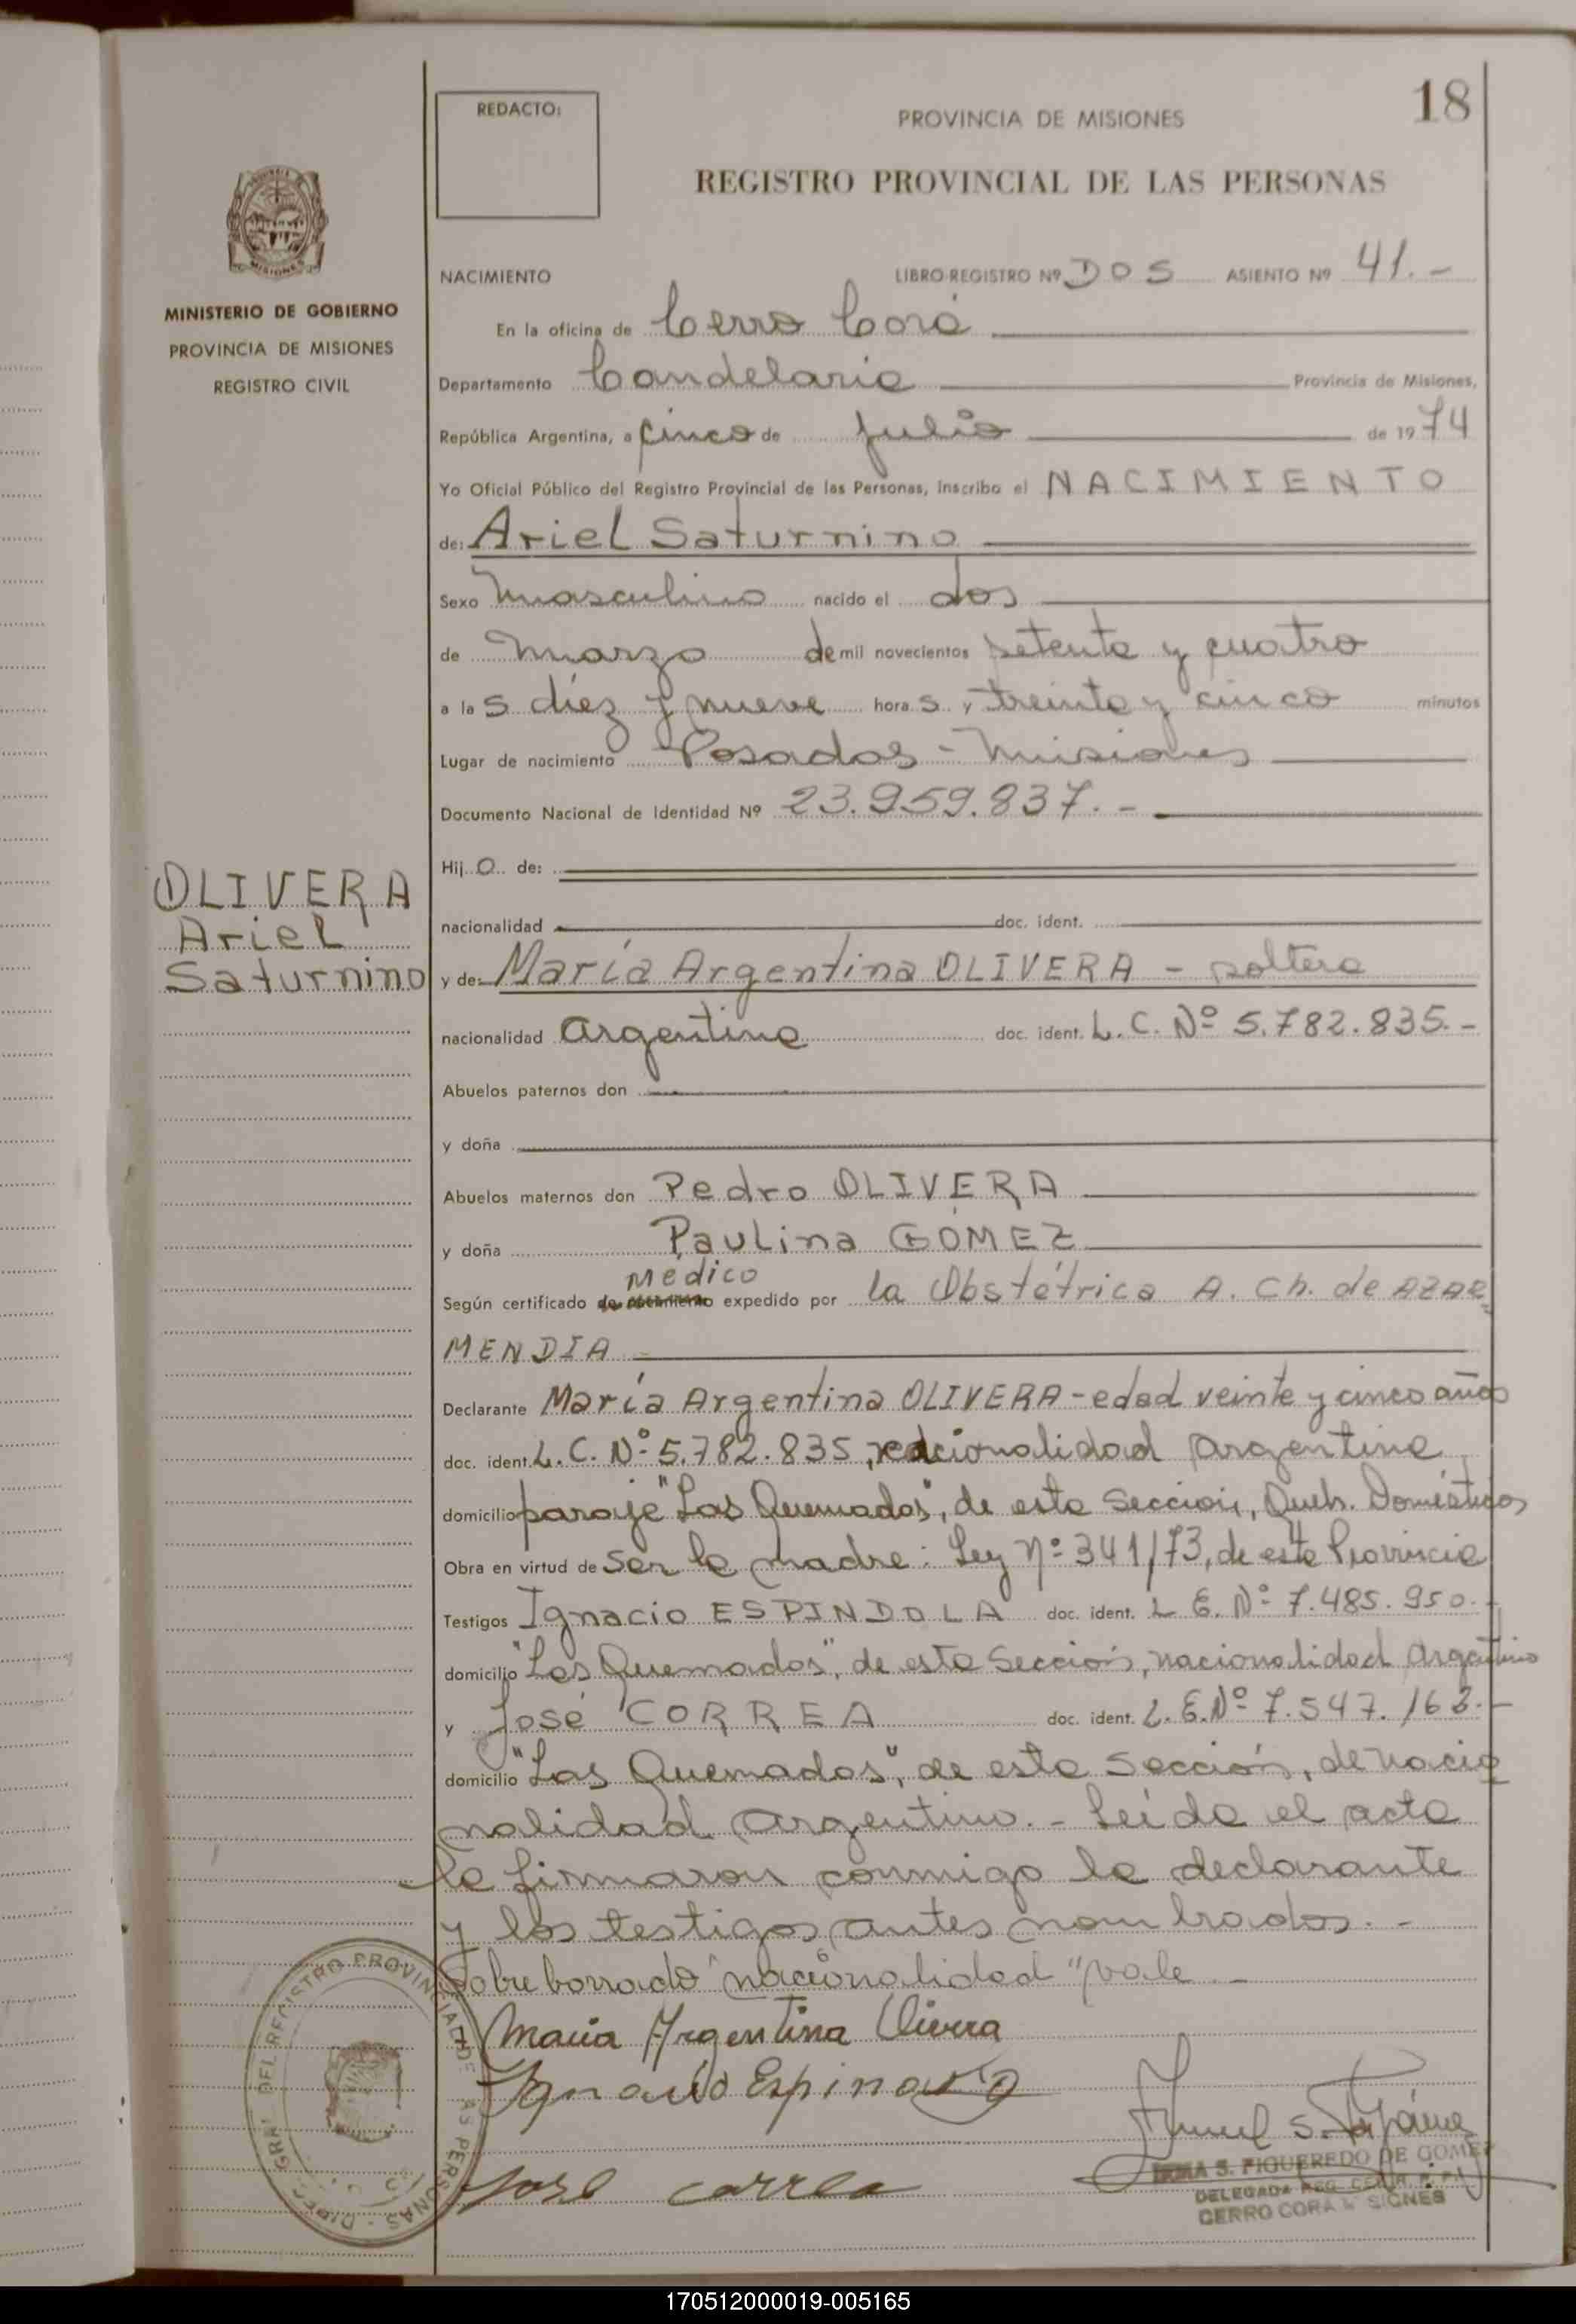 18
REDACTO:
PROVINCIA DE MISIONES
REGISTRO PROVINCIAL DE LAS PERSONAS
MINISTERIO DE GOBIERNO
PROVINCIA DE MISIONES
REGISTRO CIVIL
NACIMIENTO LIBRO-REGISTRO Nº DOS ASIENTO Nº 41.-
En la oficina de Cerro Corá
Departamento Candelaria Provincia de Misiones,
República Argentina, a cinco de julio de 1974
Yo Oficial Público del Registro Provincial de las Personas, inscribo el NACIMIENTO
de: Ariel Saturnino
Sexo masculino nacido el dos
de marzo de mil novecientos setenta y cuatro
a las diez y nueve horas y treinta y cinco minutos
Lugar de nacimiento Posadas - Misiones
Documento Nacional de Identidad Nº 23.959.837.-
Hijo de:
OLIVERA
Ariel
Saturnino
nacionalidad doc. ident.
y de: María Argentina OLIVERA - soltera
nacionalidad argentina doc. ident. L.C. Nº 5.782.835.-
Abuelos paternos don
y doña
Abuelos maternos don Pedro OLIVERA
y doña Paulina GÓMEZ
médico
Según certificado de nacimiento expedido por la Obstétrica A. Ch. de AZAR=
MENDIA
Declarante María Argentina OLIVERA - edad veinte y cinco años
doc. ident. L.C. Nº 5.782.835, nacionalidad argentina
domicilio paraje "Los Quemados", de esta Sección, Queh. Domésticos
Obra en virtud de ser la madre: Ley Nº 341/73, de esta Provincia
Testigos Ignacio ESPINDOLA doc. ident. L.E. Nº 7.485.950.-
domicilio "Los Quemados", de esta Sección, nacionalidad argentino
y José CORREA doc. ident. L.E. Nº 7.547.163.-
domicilio "Los Quemados", de esta Sección, de nacio
nalidad argentino.- Leída el acta
la firmaron conmigo la declarante
y los testigos antes nombrados.-
Sobre borrado "nacionalidad" vale.-
Maria Argentina Olivera
Ignacio Espindola
Jose Correa
IRMA S. FIGUEREDO DE GOMEZ
DELEGADA REG.
CERRO CORA MISIONES
DIREC. GRAL. DEL REGISTRO PROVINCIAL DE LAS PERSONAS
170512000019-005165